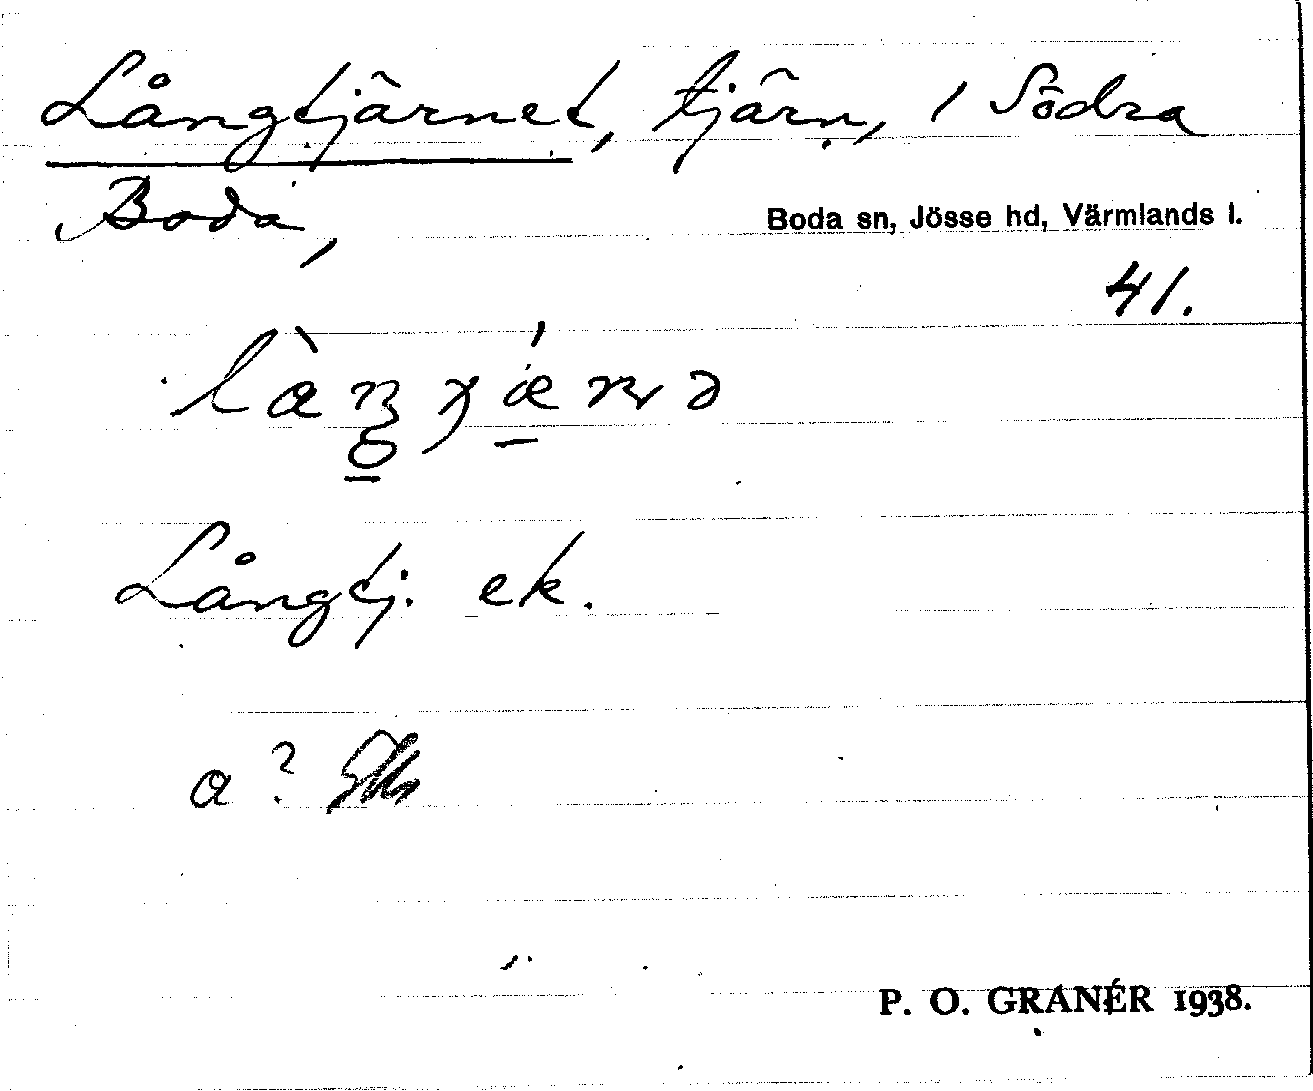 Långtjärnet, tjärn, / Södra
Boda,
Boda sn, Jösse hd, Värmlands l.
41.
Långtj. ek.
a?
P. O. GRANÉR 1938.